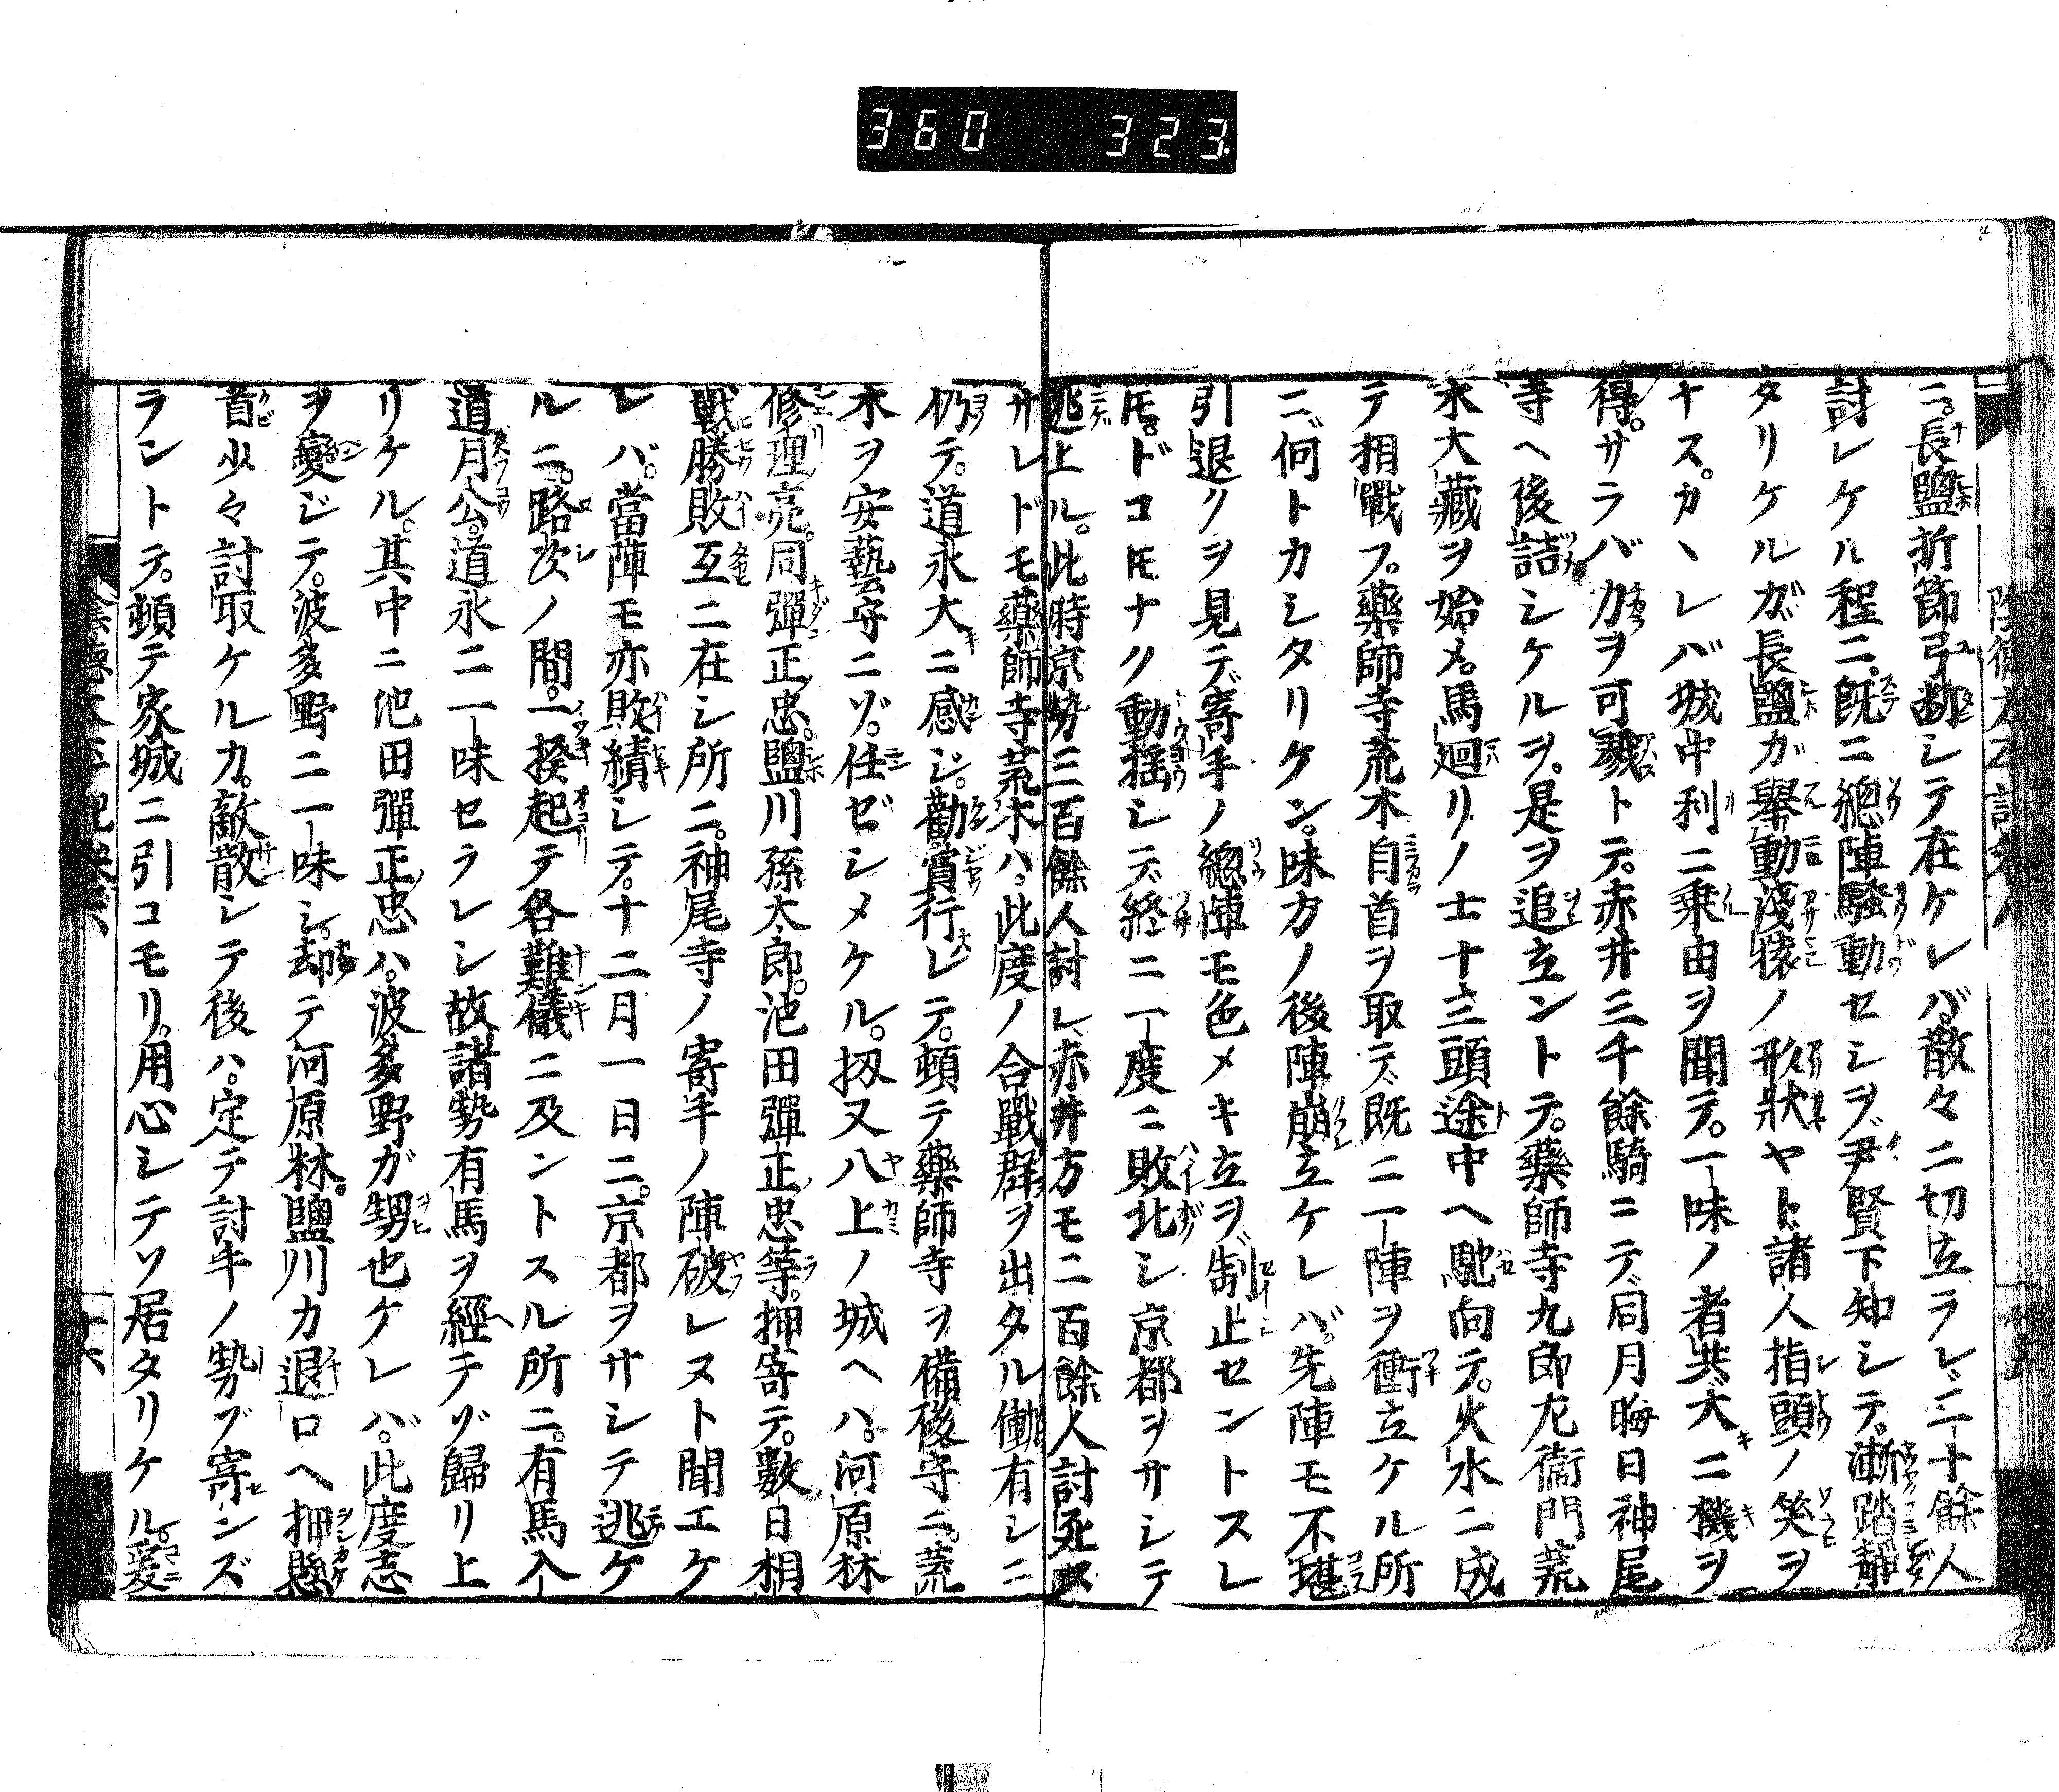 360 323
ニ。長鹽折節弓断シテ在ケレバ。散々ニ切立ラレ、二十餘人
討レケル程ニ。既ニ總陣騒動セシヲ、尹賢下知シテ。漸踏静
タリケルガ、長鹽ガ擧動淺猿ノ形狀ヤト、諸人指頭ノ笑ヲ
ナス。カヽレバ城中利ニ乗由ヲ聞テ。一味ノ者共大ニ機ヲ
得。サラバ力ヲ可戮トテ。赤井三千餘騎ニテ、同月晦日神尾
寺ヘ後詰シケルヲ。是ヲ追立ントテ。藥師寺九郎左衞門荒
木大藏ヲ始メ。馬廻リノ士十三頭途中ヘ馳向テ。火水ニ成
テ相戰フ。藥師寺荒木自首ヲ取テ、既ニ一陣ヲ衝立ケル所
ニ、何トカシタリケン。味方ノ後陣崩立ケレバ。先陣モ不堪
引退クヲ見テ、寄手ノ總陣モ色メキ立ヲ、制止セントスレ
𪜈。ドコ𪜈ナク動揺シテ、終ニ一度ニ敗北シ京都ヲサシテ
迯上ル。此時京勢三百餘人討レ、赤井方モ二百餘人討死ス
サレドモ藥師寺荒木ハ。此度ノ合戰群ヲ出タル働有シニ
仍テ。道永大ニ感ジ。勸賞行レテ。頓テ藥師寺ヲ備後守ニ。荒
木ヲ安藝守ニゾ。任ゼシメケル。扨又八上ノ城ヘハ。河原林
修理亮。同彈正忠。鹽川孫太郎。池田彈正忠等。押寄テ。數日相
戰勝敗互ニ在シ所ニ。神尾寺ノ寄手ノ陣破レヌト聞エケ
レバ。當陣モ亦敗績シテ。十二月一日ニ。京都ヲサシテ逃ケ
ルニ。路次ノ間。一揆起テ各難儀ニ及ントスル所ニ。有馬入
道月公。道永ニ一味セラレシ故諸勢有馬ヲ經テゾ歸リ上
リケル。其中ニ池田彈正忠ハ。波多野ガ甥也ケレバ。此度志
ヲ變ジテ。波多野ニ一味シ。却テ河原林。鹽川カ退口ヘ押懸
首少々討取ケルカ。敵散シテ後ハ。定テ討手ノ勢ヅ寄ンズ
ラントテ。頓テ家城ニ引コモリ。用心シテソ居タリケル。爰